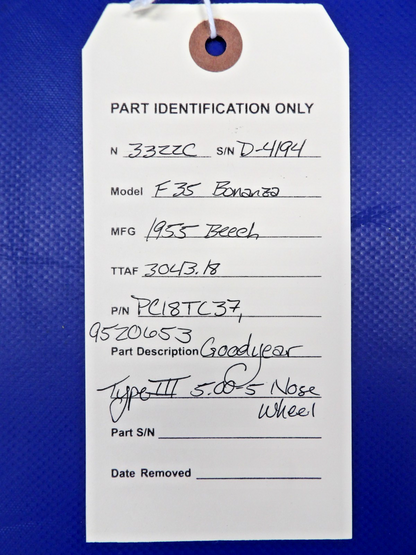 PART IDENTIFICATION ONLY
N 3322C S/N D-4194
Model F35 Bonanza
MFG 1955 Beech
TTAF 3043.18
P/N PC18TC37,
9520653
Part Description Goodyear
Type III 5.00-5 Nose
Wheel
Part S/N
Date Removed